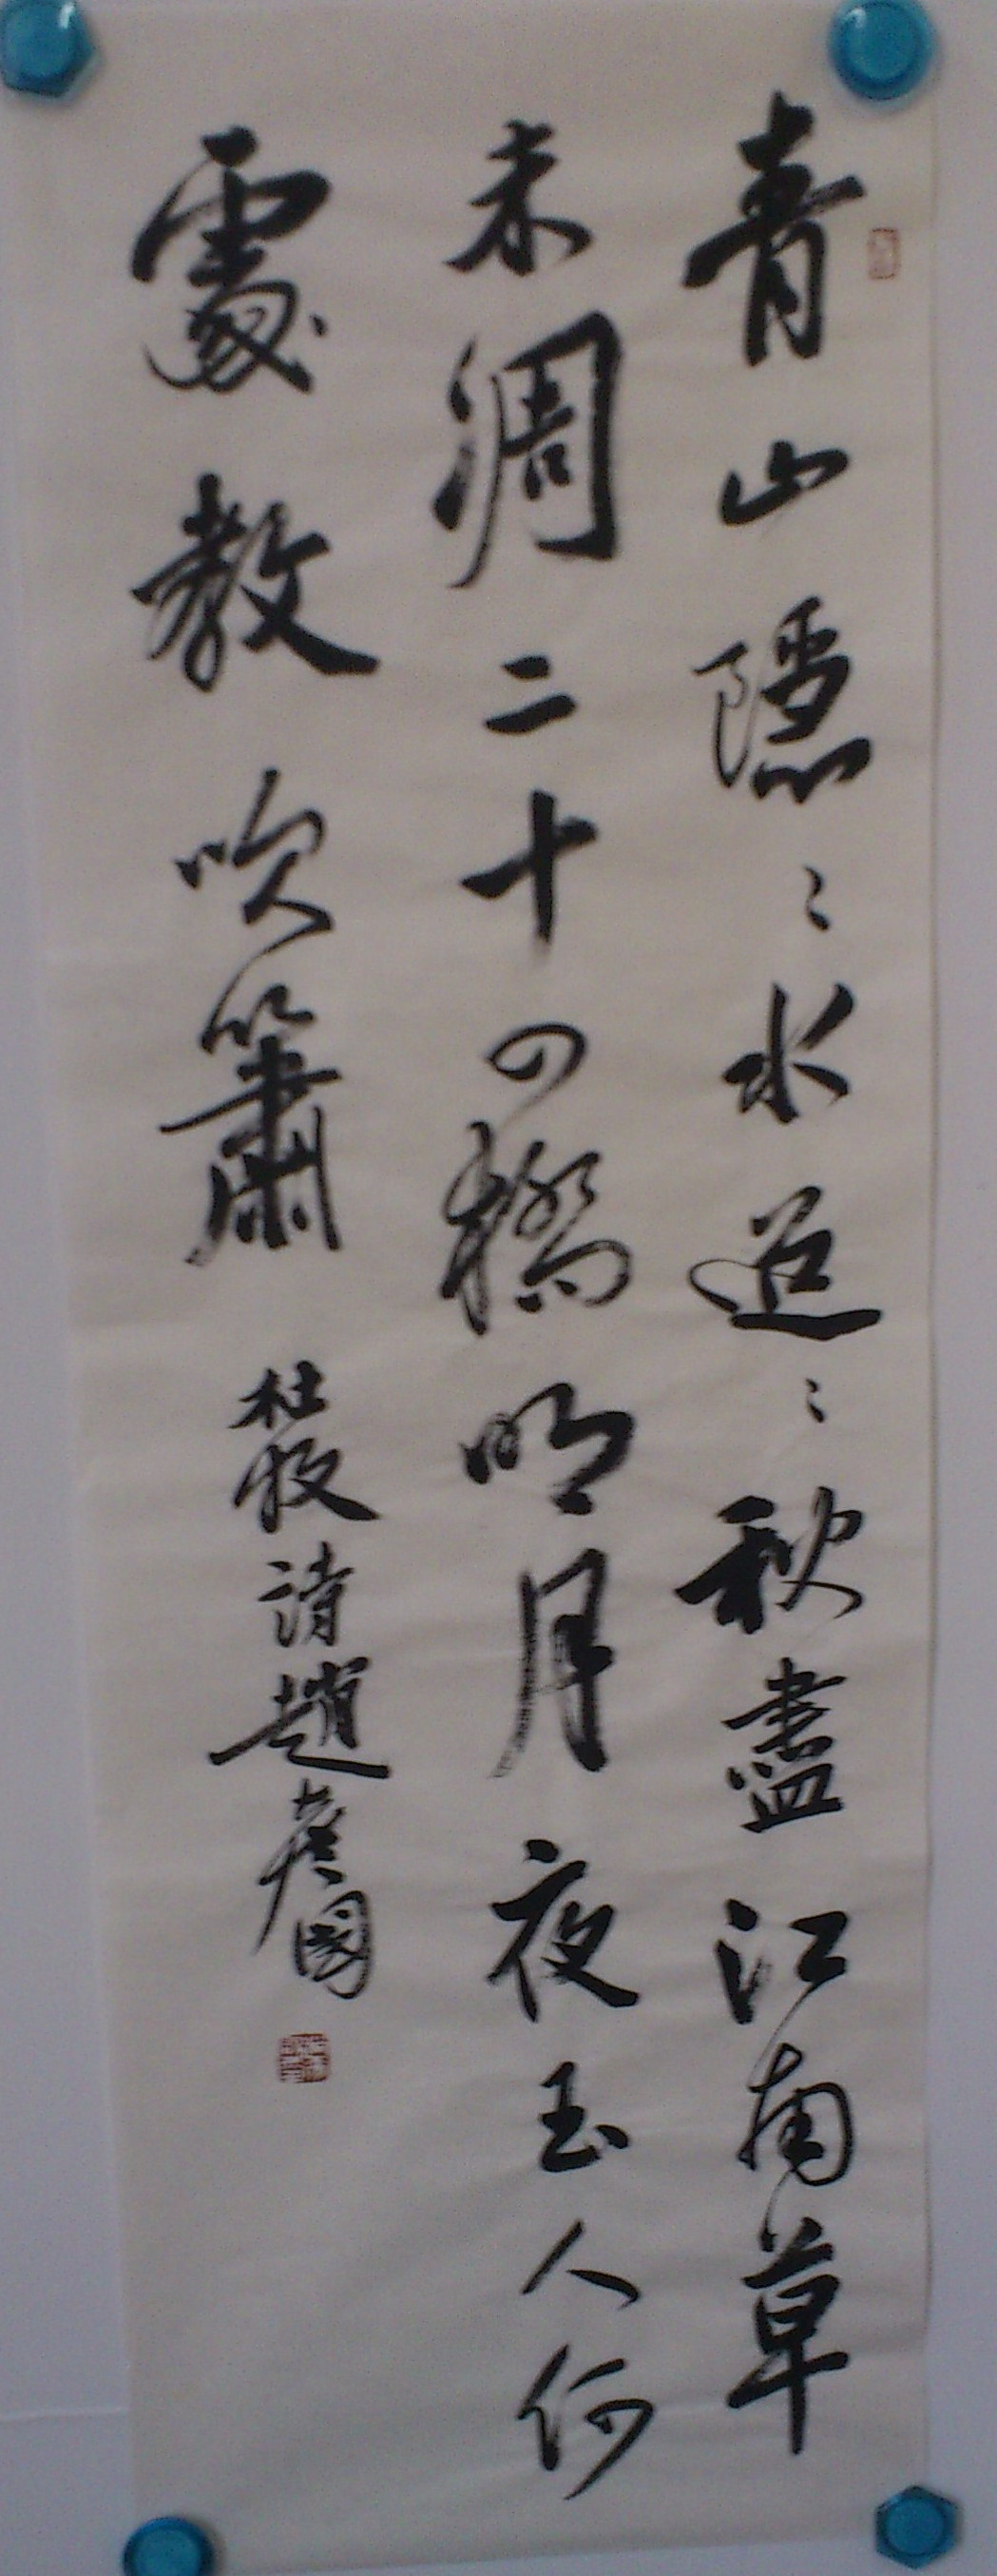 青山隱〻水迢〻秋盡江南草
未凋二十四橋明月夜玉人何
處教吹簫 杜牧詩趙彥國